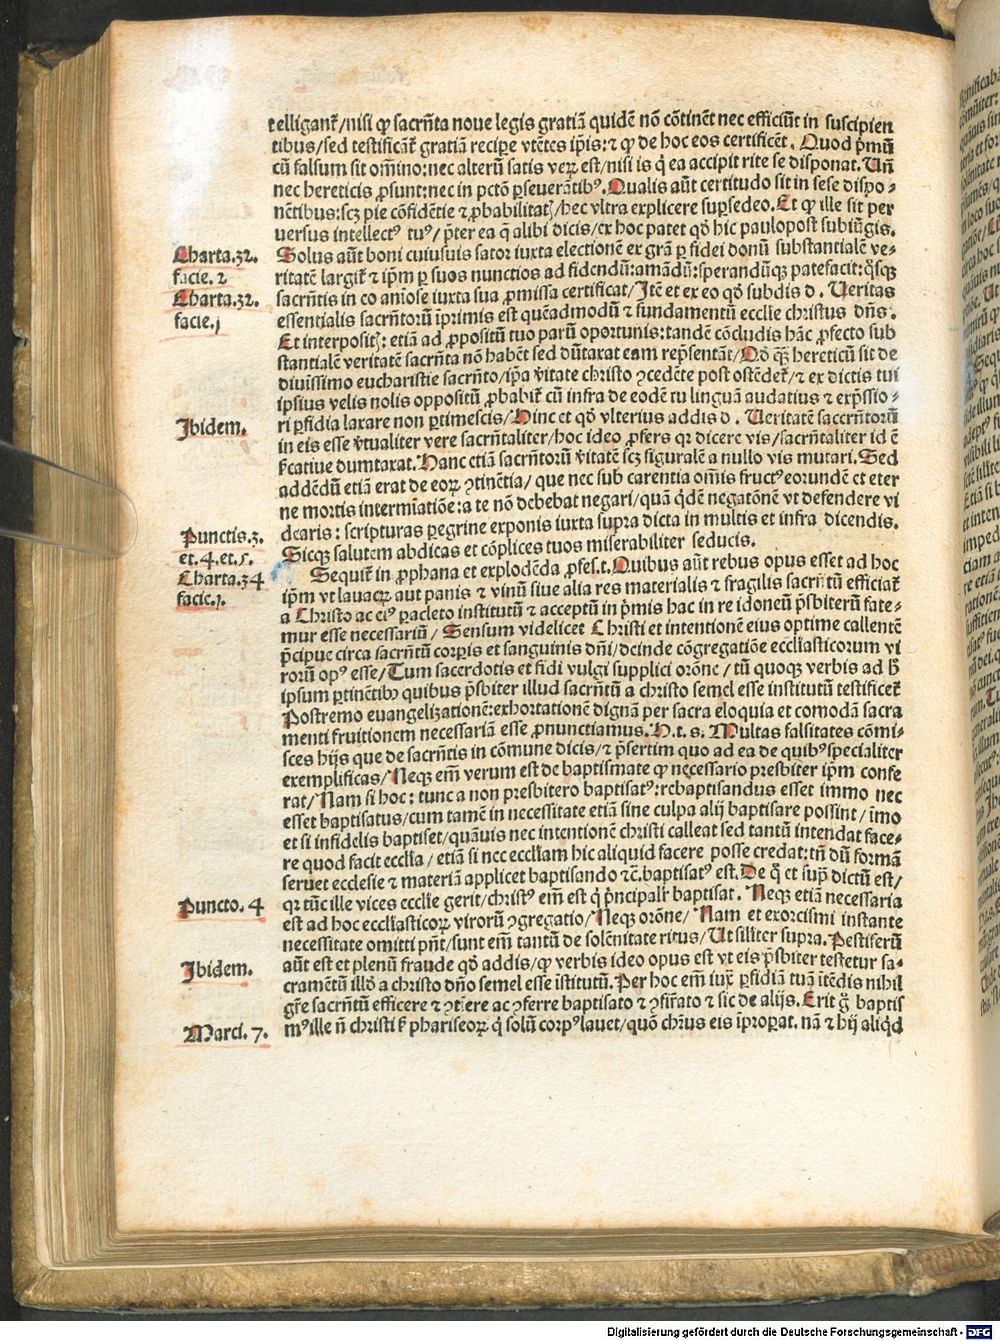 telligant᷑/nisi ꝙ sacrn̄ta noue legis gratiā quidē nō cōtinēt nec efficiūt in suscipien
tibus/sed testificāt᷑ gratiā recipe vtētes ip̄is:⁊ ꝙ de hoc eos certificēt. Quod p̄mū
cū falsum sit om̄ino:nec alterū satis veꝝ est/nisi is q̇ ea accipit rite se disponat. Un̄
nec hereticis ꝓsunt:nec in pctō ꝑseuerātibꝰ. Qualis aūt certitudo sit in sese dispo⸗
nētibus:scꝫ pie cōfidētie ⁊ ꝓbabilitatꝭ/hec vltra explicere suꝑsedeo. Et ꝙ ille sit per
uersus intellectꝰ tuꝰ/ p̄ter ea q̄ alibi dicis/ex hoc patet qd̓ hic paulopost subiūgis.
Charta.32. Solus aūt boni cuiusuis sator iuxta electionē ex grā ꝑ fidei donū substantialē ve⸗
facie. 2 ritatē largit᷑ ⁊ ip̄m ꝑ suos nuncios ad fidendū:amādū:sperandūqꝫ patefacit:q̇sqꝫ
Charta.32. sacrn̄tis in eo aniōse iuxta sua ꝓmissa certificat/Itē et ex eo qd̓ subdis d. Ueritas
facie.j essentialis sacrn̄torū īprimis est quēadmodū ⁊ fundamentū eccl̓ie christus dn̄s.
Et interpositꝭ: etiā ad ꝓpositū tuo parū oportunis:tandē cōcludis hāc ꝓfecto sub
stantialē veritatē sacrn̄ta nō habēt sed dūtaxat eam rep̄sentāt/Qd̓ qꝫ hereticū sit de
diuīssimo eucharistie sacrn̄to/ip̄a v̓itate christo ꝯcedēte post ostēdet᷑/⁊ ex dictis tui
ipsius velis nolis oppositū ꝓbabit᷑ cū infra de eodē tu linguā audatius ⁊ exp̄ssio⸗
Ibidem. ri ꝑfidia laxare non ꝑtimescis/Hinc et qd̓ vlterius addis d. Ueritatē saccrn̄torū
in eis esse v̓tualiter vere sacrn̄taliter/hoc ideo ꝓfers qꝛ dicere vis/sacrn̄taliter id ē
f̓catiue dumtaxat. Hanc etiā sacrn̄torū v̓itatē scꝫ siguralē a nullo vis mutari. Sed
addēdū etiā erat de eoꝝ ꝯtinētia/ que nec sub carentia om̄is fructꝰ eorundē et eter
ne mortis intermīatiōe:a te nō debebat negari/quā q̇dē negatōnē vt defendere vi
Punctis.3. dearis: scripturas ꝑegrine exponis iuxta supra dicta in multis et infra dicendis.
et. 4. et. 5. Sicqꝫ salutem abdicas et cōplices tuos miserabiliter seducis.
Charta.34 Sequit᷑ in ꝓphana et explodēda ꝓfes.t. Quibus aūt rebus opus esset ad hoc
facie.j. ip̄m vt lauacꝝ aut panis ⁊ vinū siue alia res materialis ⁊ fragilis sacrn̄tū efficiat᷑
a Christo ac eiꝰ ꝑacleto institutū ⁊ acceptū in p̄mis hac in re idoneū p̄sbiterū fate⸗
mur esse necessariū/ Sensum videlicet Christi et intentionē eius optime callentē
p̄cipue circa sacrn̄tū corꝑis et sanguinis dn̄i/deinde cōgregatiōe eccl̓iasticorum vi
rorū opꝰ esse/Tum sacerdotis et fidi vulgi supplici orōne/ tū quoqꝫ verbis ad h̓
ipsum ꝑtinētibꝫ quibus p̄sbiter illud sacrn̄tū a christo semel esse institutū testificet᷑
Postremo euangelizationē:exhortationē dignā per sacra eloquia et comodā sacra
menti fruitionem necessariā esse ꝓnunctiamus. H. t. s. Multas falsitates cōmi⸗
sces hijs que de sacrn̄tis in cōmune dicis/⁊ p̄sertim quo ad ea de quibꝰ specialiter
exemplificas/Neqꝫ em̄ verum est de baptismate ꝙ necessario presbiter ip̄m confe
rat/Nam si hoc: tunc a non presbitero baptisatꝰ:rebaptisandus esset immo nec
esset baptisatus/cum tamē in necessitate etiā sine culpa alij baptisare possint/īmo
et si infidelis baptiset/quāuis nec intentionē christi calleat sed tantū intendat face⸗
re quod facit eccl̓ia/ etiā si nec eccl̓iam hic aliquid facere posse credat:tn̄ dū formā
seruet ecclesie ⁊ materiā applicet baptisando ⁊c̄.baptisatꝰ est. De q̇ et sup̄ dictū est/
Puncto. 4 qꝛ tūc ille vices eccl̓ie gerit/christꝰ em̄ est q̇ p̄ncipalr̓ baptisat. Neqꝫ etiā necessaria
est ad hoc eccl̓iasticoꝝ virorū ꝯgregatio/Neqꝫ orōne/ Nam et exorcismi instante
necessitate omitti pn̄t/sunt em̄ tantū de solēnitate ritus/Ut sil̓iter supra. Pestiferū
Ibidem. aūt est et plenū fraude qd̓ addis/ꝙ verbis ideo opus est vt eis p̄sbiter testetur sa⸗
cramētū illd̓ a christo dn̄o semel esse īstitutū. Per hoc em̄ iux̄ ꝑfidiā tuā ītēdis nihil
gr̄e sacrn̄tū efficere ⁊ ꝯtīere ac ꝯferre baptisato ⁊ ꝯfir̄ato ⁊ sic de alijs. Erit g̊ baptis
Marci. 7. mꝰ ille n̄ christi f̓ phariseoꝝ q̇ solū corpꝰ lauet/quō chr̄us eis īproꝑat. nā ⁊ hij aliq̇d